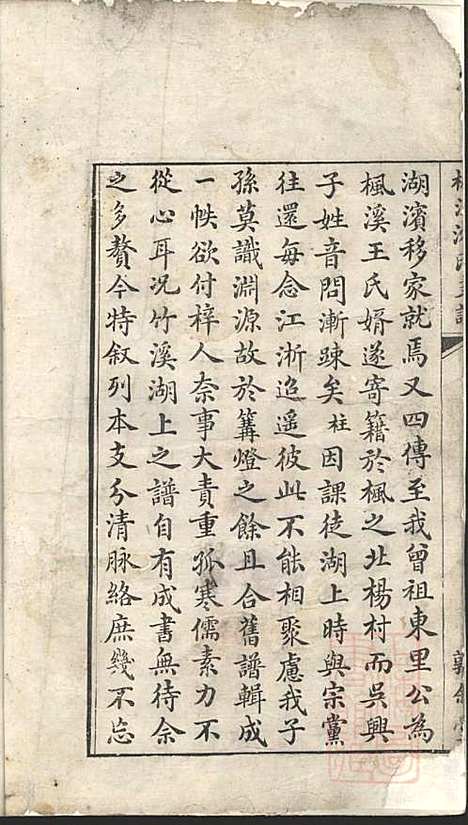 湖濱移家就焉又四傳至我曾祖東里公為
楓溪王氏婿遂寄籍於楓之北楊村而吳興
子姓音問漸踈矣柱因課徒湖上時與宗黨
往還每念江浙迢遥彼此不能相聚慮我子
孫莫識淵源故於篝燈之餘且合舊譜輯成
一帙欲付梓人奈事大責重孤寒儒素力不
從心耳况竹溪湖上之譜自有成書無待余
之多贅今特叙列本支分清脉絡庶幾不忘